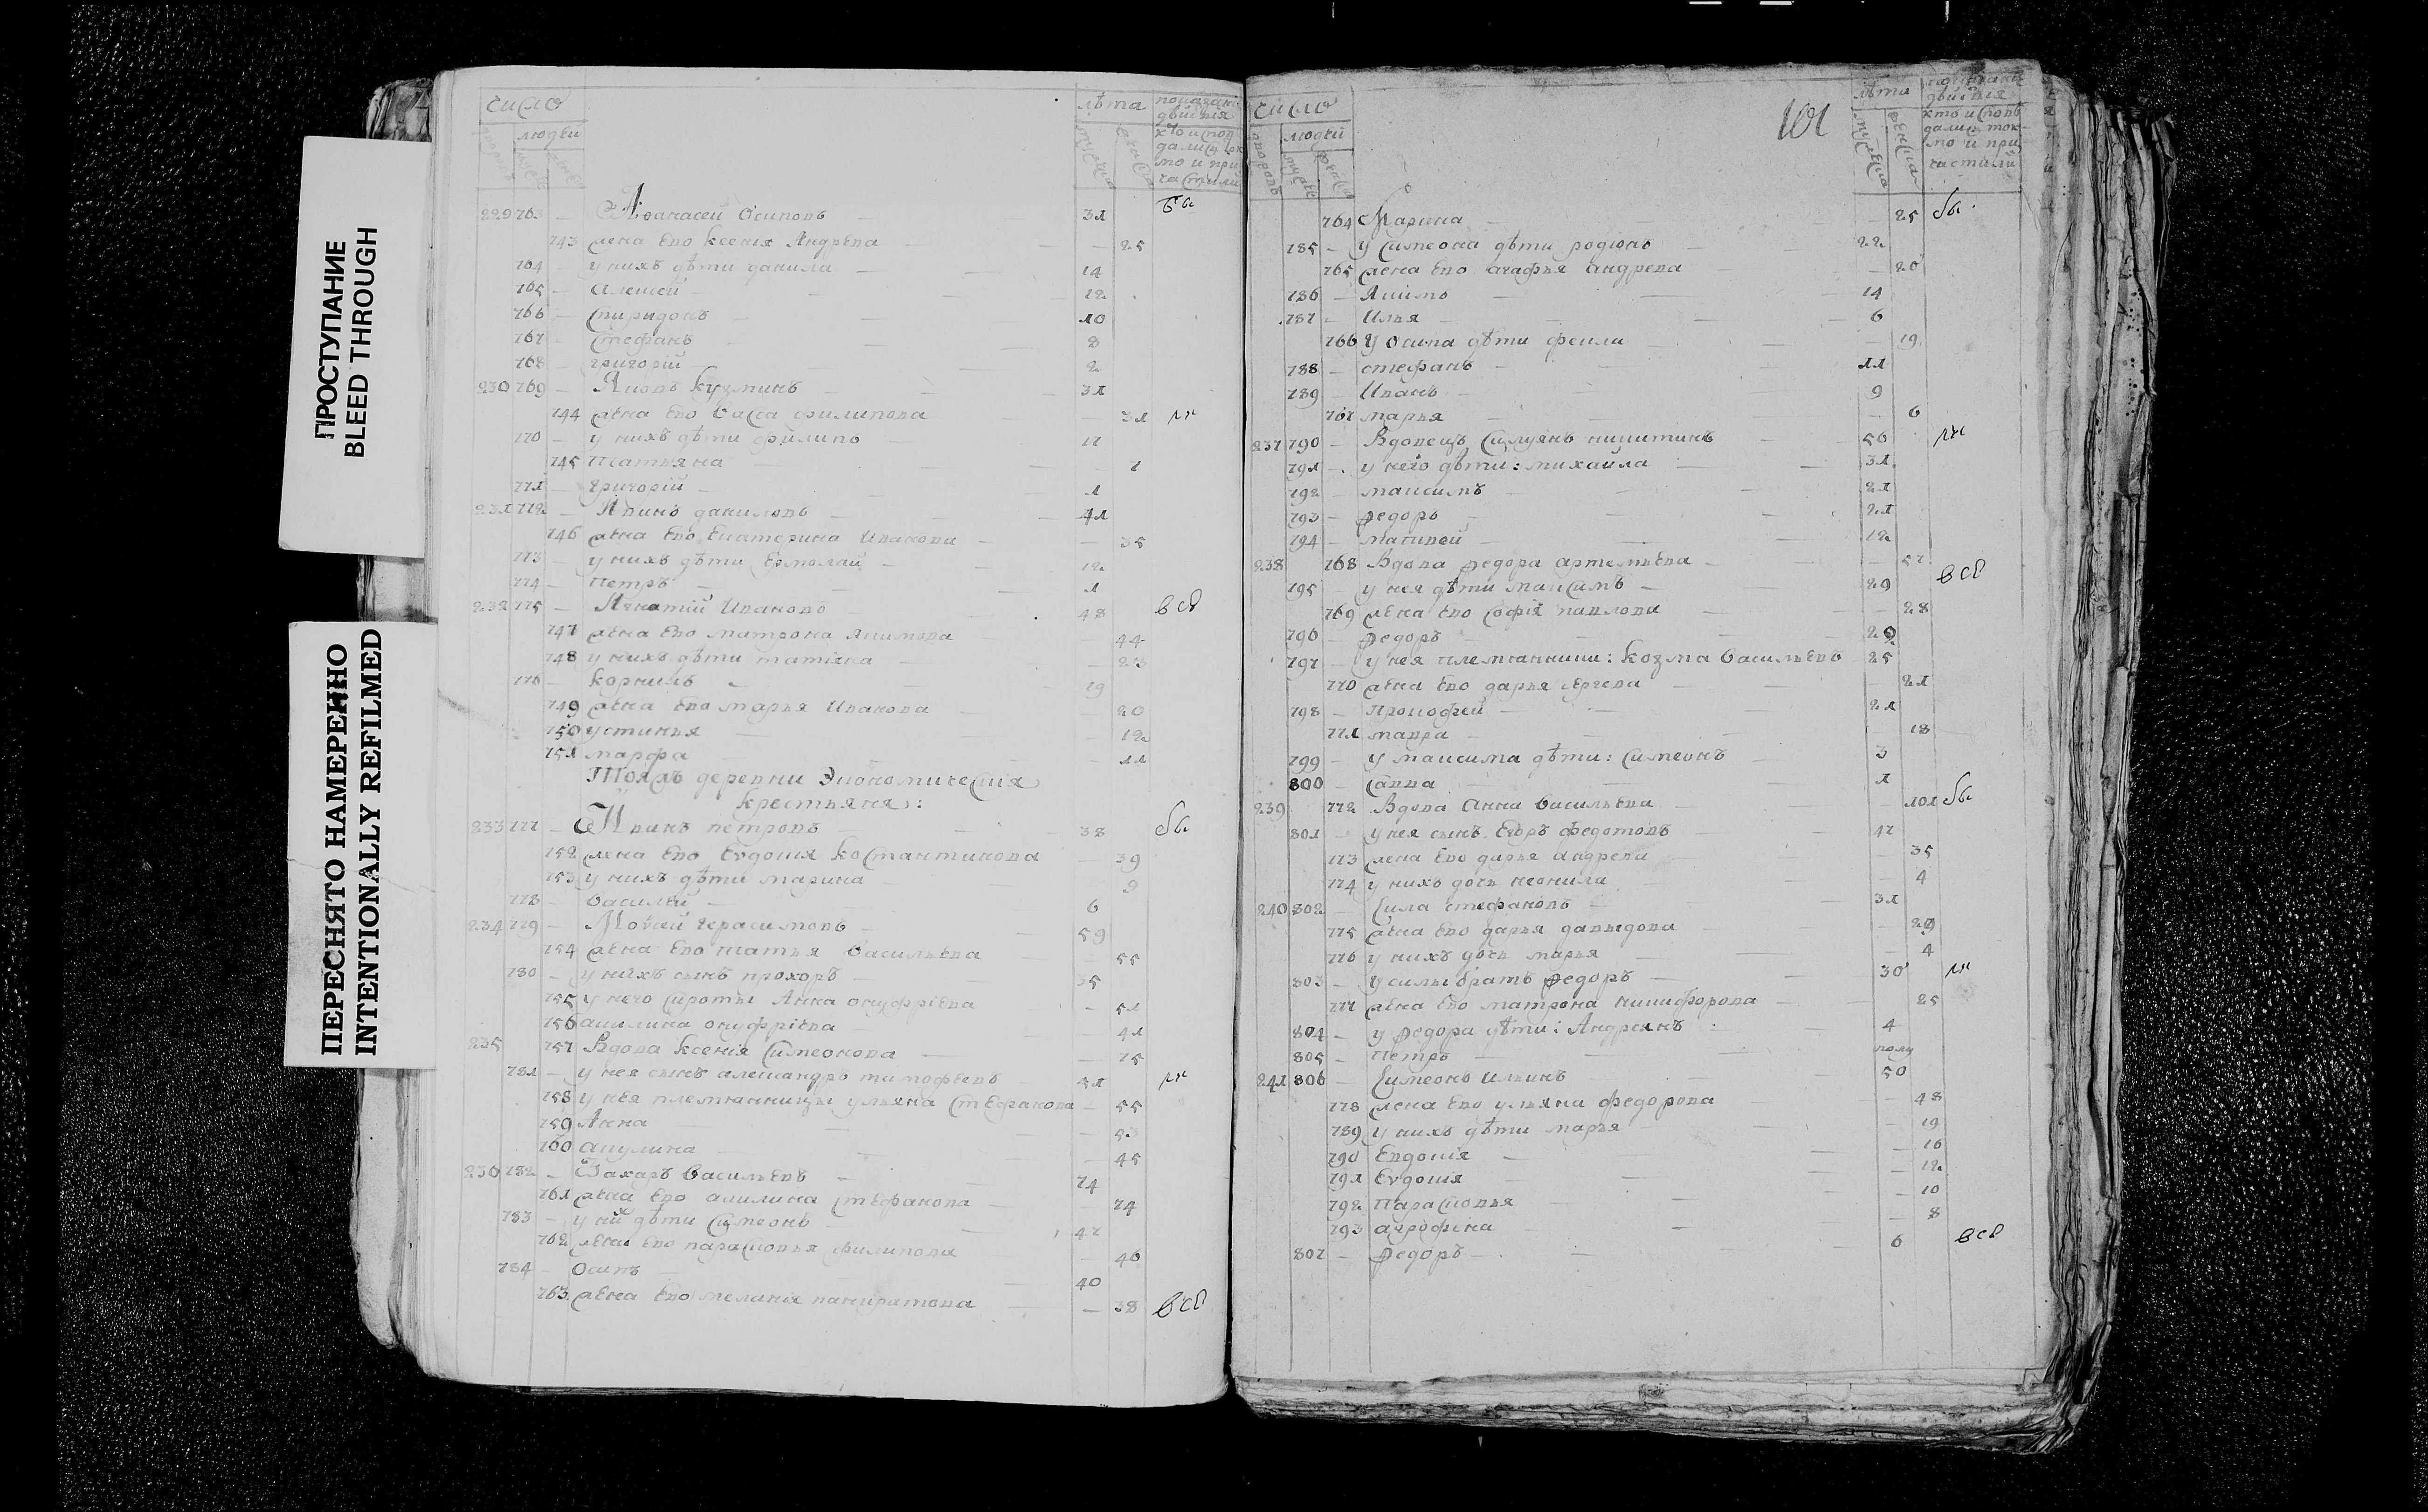 ПРОСТУПАНИЕ
BLEED THROUGH
ПЕРЕСНЯТО НАМЕРЕННО
INTENTIONALLY REFILMED
число
людей
лѣта
229 763 — Аѳанасей Осиповъ — 31
743 жена ево ксенія Андрѣева — 25
764 — у нихъ дѣти данила — 14
765 — алексей — 12
766 — спиридонъ — 10
767 — стефанъ — 8
768 — григорій — 2
230 769 — Яковъ кузминъ — 31
744 жена ево васса филипова — 31
770 — у нихъ дѣти филипъ — 17
745 татьяна — 7
771 — григорій — 1
231 772 — Иванъ даниловъ — 41
746 жена ево екатерина Иванова — 35
773 — у нихъ дѣти Ермолай — 12
774 — петръ — 1
232 775 — Игнатій Ивановъ — 48
747 жена ево матрона якимова — 44
748 у нихъ дѣти татіяна — 23
776 — корнилъ — 19
749 жена ево марья Иванова — 20
750 устинья — 12
751 марфа — 11
Тояжъ деревни Экономическія
крестьяня:
233 777 — Иванъ петровъ — 38
752 жена ево Евдокія костантинова — 39
753 у нихъ дѣти марина — 9
778 — василей — 6
234 779 — Моѵсей герасимовъ — 59
754 жена ево татья васильева — 55
780 — у нихъ сынъ прохоръ — 35
755 у него сироты Анна онуфріева — 51
756 акилина онуфріева — 41
235 757 Вдова ксенія Симеонова — 75
781 — у нея сынъ александръ тимофѣевъ — 51
758 у нея племянницы ульяна стефанова — 55
759 Анна — 53
760 акулина — 45
236 782 — Захаръ васильевъ — 74
761 жена ево акилина стефанова — 74
783 — у них дѣти Симеонъ — 47
762 жена ево парасковья филипова — 46
784 — Осипъ — 40
763 жена ево меланія панкратова — 38 всѣ
101
число
людей
лѣта
764 Марина — 25
785 — у Симеона дѣти родіонъ — 22
765 жена ево агафья андреева — 20
786 — Якимъ — 14
787 — Илья — 6
766 У осипа дѣти фекла — 19
788 — стефанъ — 11
789 — Иванъ — 9
767 марья — 6
237 790 — Вдовецъ Силуянъ никитинъ — 56
791 — у него дѣти: михайла — 31
792 — максимъ — 21
793 — федоръ — 21
794 — матвей — 12
238 768 Вдова федора артемьева — 57
795 — у нея дѣти максимъ — 29 всѣ
769 жена ево софія павлова — 28
796 — федоръ — 20
797 — у нея племянники: козма васильевъ 25
770 жена ево дарья — 21
798 — прокофей — 21
771 мавра — 18
799 — у максима дѣти: Симеонъ 3
800 — савва — 1
239 772 Вдова Анна васильева — 101
801 — у нея сынъ Егоръ федотовъ — 47
773 жена ево дарья андреева — 35
774 у нихъ дочь неонила — 4
240 802 — Сила стефановъ — 31
775 жена ево дарья давыдова — 29
776 у нихъ дочь марья — 4
803 — у силы братъ федоръ — 30
777 жена ево матрона никифорова — 25
804 — у федора дѣти: Андреянъ — 4
805 — петръ — полу
241 806 — Симеонъ ильинъ — 50
778 жена ево ульяна федорова — 48
789 у нихъ дѣти марья — 19
790 Евдокія — 16
791 Евдокія — 12
792 парасковья — 10
793 агрофена — 8
807 — федоръ — 6 всѣ